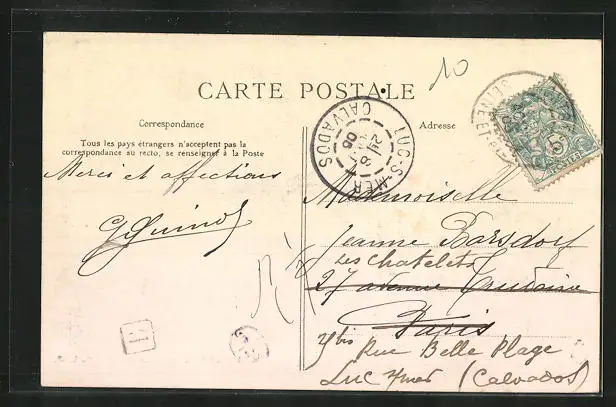 10
CARTE POSTALE
Correspondance
Adresse
Tous les pays étrangers n'acceptent pas la
correspondance au recto, se renseigner à la Poste
Merci et affections
LUC-S-MER
CALVADOS
Mademoiselle
Jeanne Barsdorf
Les Chatelets
27 avenue
Paris
bis Rue Belle Plage
Luc s/mer (Calvados)